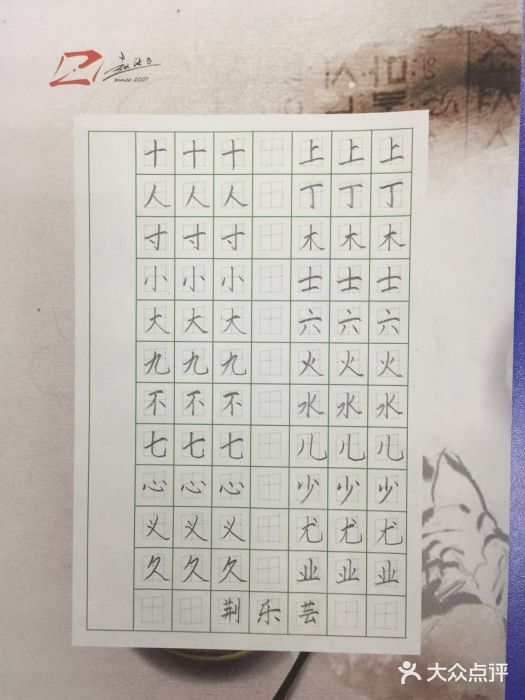 since 2007
十 十 十 上 上 上
人 人 人 丁 丁 丁
寸 寸 寸 木 木 木
小 小 小 士 士 士
大 大 大 六 六 六
九 九 九 火 火 火
不 不 不 水 水 水
七 七 七 儿 儿 儿
心 心 心 少 少 少
义 义 义 尤 尤 尤
久 久 久 业 业 业
荆 乐 芸
大众点评